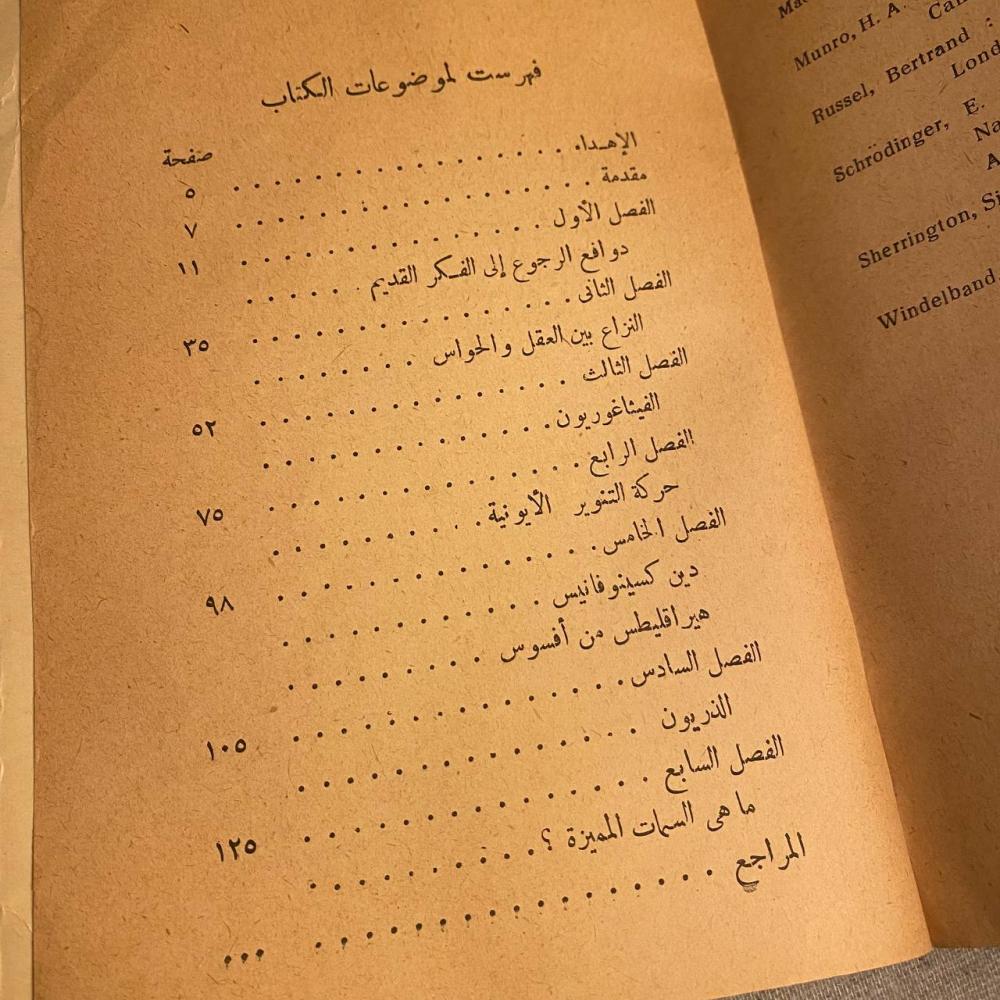 فهرست لموضوعات الكتاب
صفحة
الإهداء . . . . . . . . . . . . . . . . ٥
مقدمة . . . . . . . . . . . . . . . . ٧
الفصل الأول . . . . . . . . . . . . . . ١١
دوافع الرجوع إلى الفكر القديم . . . . . .
الفصل الثانى . . . . . . . . . . . . . . ٣٥
النزاع بين العقل والحواس . . . . . . . .
الفصل الثالث . . . . . . . . . . . . . . ٥٢
الفيثاغوريون . . . . . . . . . . . . .
الفصل الرابع . . . . . . . . . . . . . . ٧٥
حركة التنوير الأيونية . . . . . . . . . .
الفصل الخامس . . . . . . . . . . . . . . ٩٨
دين كسينوفانيس . . . . . . . . . . . .
هيراقليطس من أفسوس . . . . . . . . .
الفصل السادس . . . . . . . . . . . . . . ١٠٥
الذريون . . . . . . . . . . . . . . .
الفصل السابع . . . . . . . . . . . . . . ١٢٥
ما هى السمات المميزة ؟ . . . . . . . . . .
المراجع . . . . . . . . . . . . . . . . . ...
Munro, H. A.
Russel, Bertrand :
Lond
Schrödinger, E.
Na
A
Sherrington, Si
Windelband,